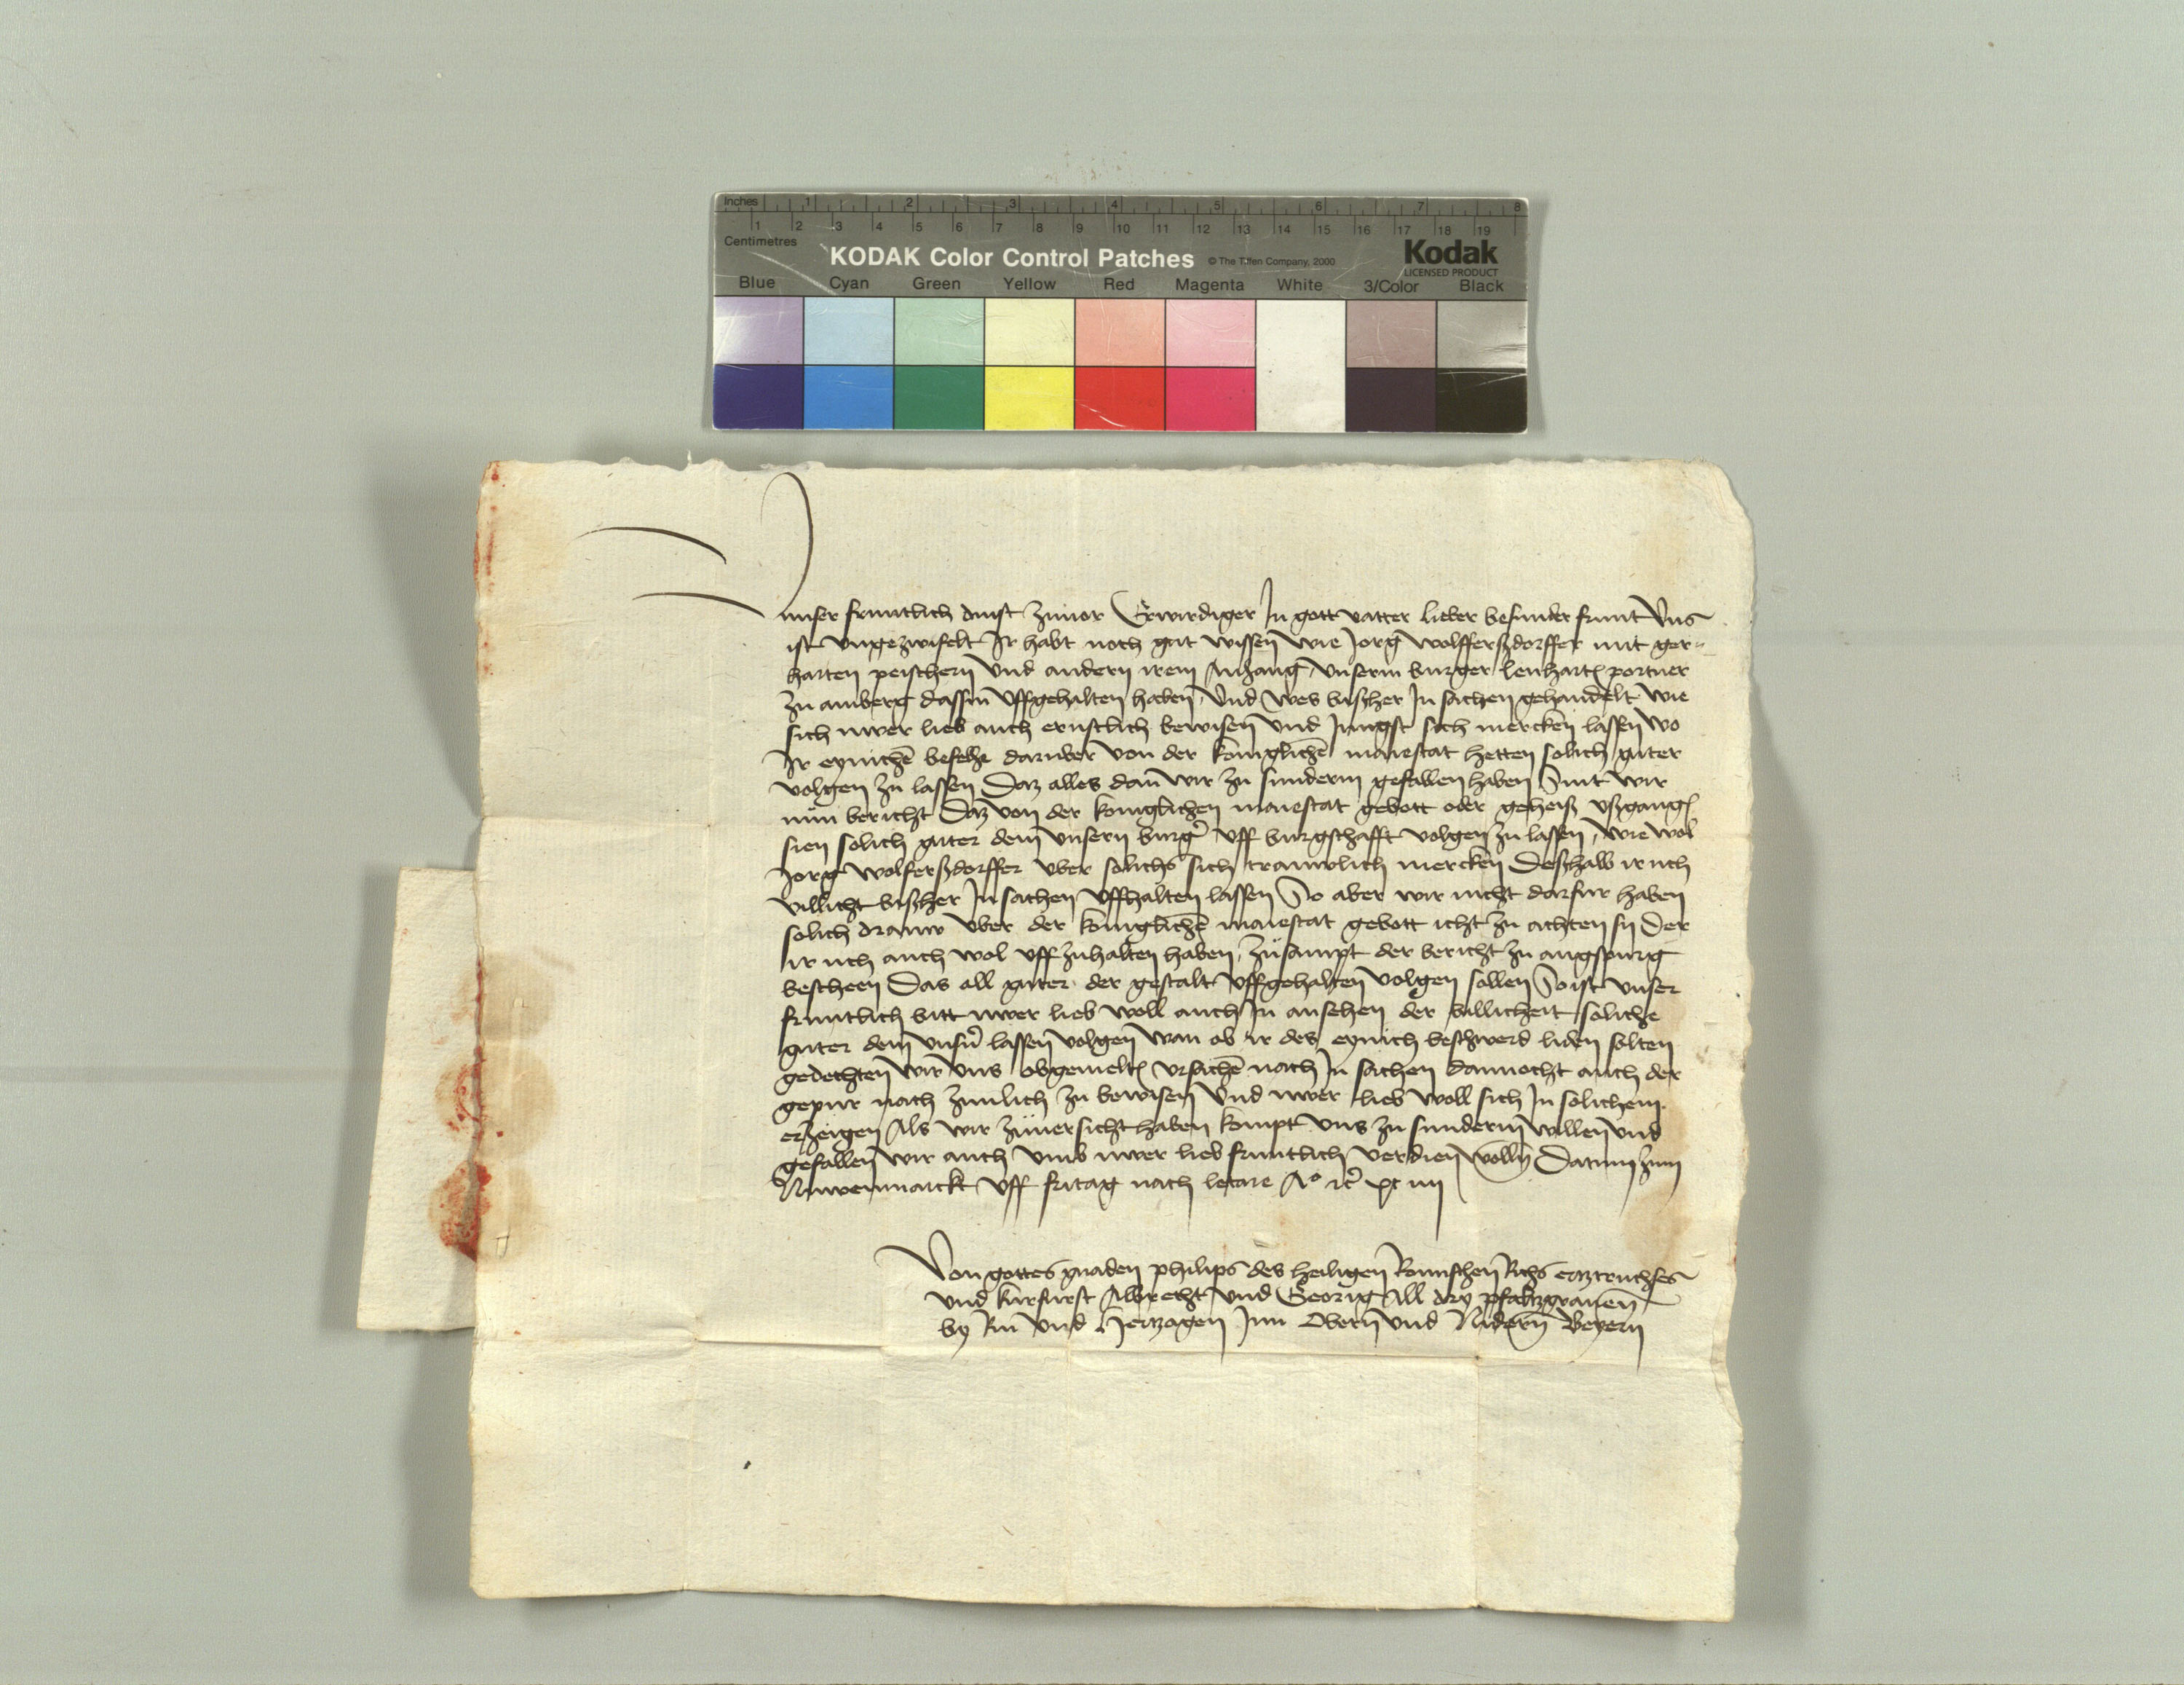 Inches 1 2 3 4 5 6 7 8
1 2 3 4 5 6 7 8 9 10 11 12 13 14 15 16 17 18 19
Centimetres
KODAK Color Control Patches © The Tiffen Company, 2000 Kodak
LICENSED PRODUCT
Blue Cyan Green Yellow Red Magenta White 3/Color Black
Unser fruntlich dinst zuuor Erwirdiger In gott vatter lieber besunder frunt Vns
ist vngezwifelt Ir habt noch gut wissen wie Jorg wolfferßdorffer mit ger-
harten peischern Vnd andern irem Anhang Vnserm burger lenhart portner
zu amberg Vffgehalten haben Vnd wes bißher In sachen gehandelt wie
sich uwer lieb auch ernstlich bewisen Vnd Jungst sich mercken lassen wo
Ir eynichē befelhe daruber von der koniglichē maiestat hetten solich guter
volgen zu lassen Daz alles dañ wir zu sunderm gefallen haben Sint wir
nün bericht Daz von der koniglichen maiestat gebott oder geheiß vßgang
sien solich guter dem vnsern burg' Vff burgschafft volgen zu lassen, wie wol
Jorg wolferßdorffer vber solichs sich trauwlich mercken Deßhalb ir uch
villicht bißher In sachen Vffhalten lassen So aber wir nicht darfur haben
solich drauw vber der koniglichē maiestat gebott icht zu achten sy Der
ir uch auch wol vff zuhalten haben, züsampt der bericht zu augspurg
bescheen Das all guter der gestalt Vffgehalten volgen sollen So ist vnser
fruntlich bitt uwer lieb woll auch In ansehen der billicheit soliche
guter dem vnsn̄ lassen volgen wan ob ir des eynich beschwerd liden solten
gedechten wir Vns obgemelt vrsachē nach In sachen dannocht auch der
gepur nach zimlich zu bewisen Vnd uwer lieb woll sich In solichem
erzeigen Als wir züuersicht haben kompt vns zu sunderm willen vnd
gefallen wir auch vmb uwer lieb fruntlich verdien wolln̄ Datum zum
Nuwenmarckt Vff fritag nach letare Ao rc xc iiij
Von gottes gnaden philips des heiligen Romischen Richs ertztruchses
vnd kurfurst Albrecht Vnd Georig All dry pfaltzgrauen̄
by Rin Vnd Hertzogen Inn Obern Vnd Nidern̄ Beyern